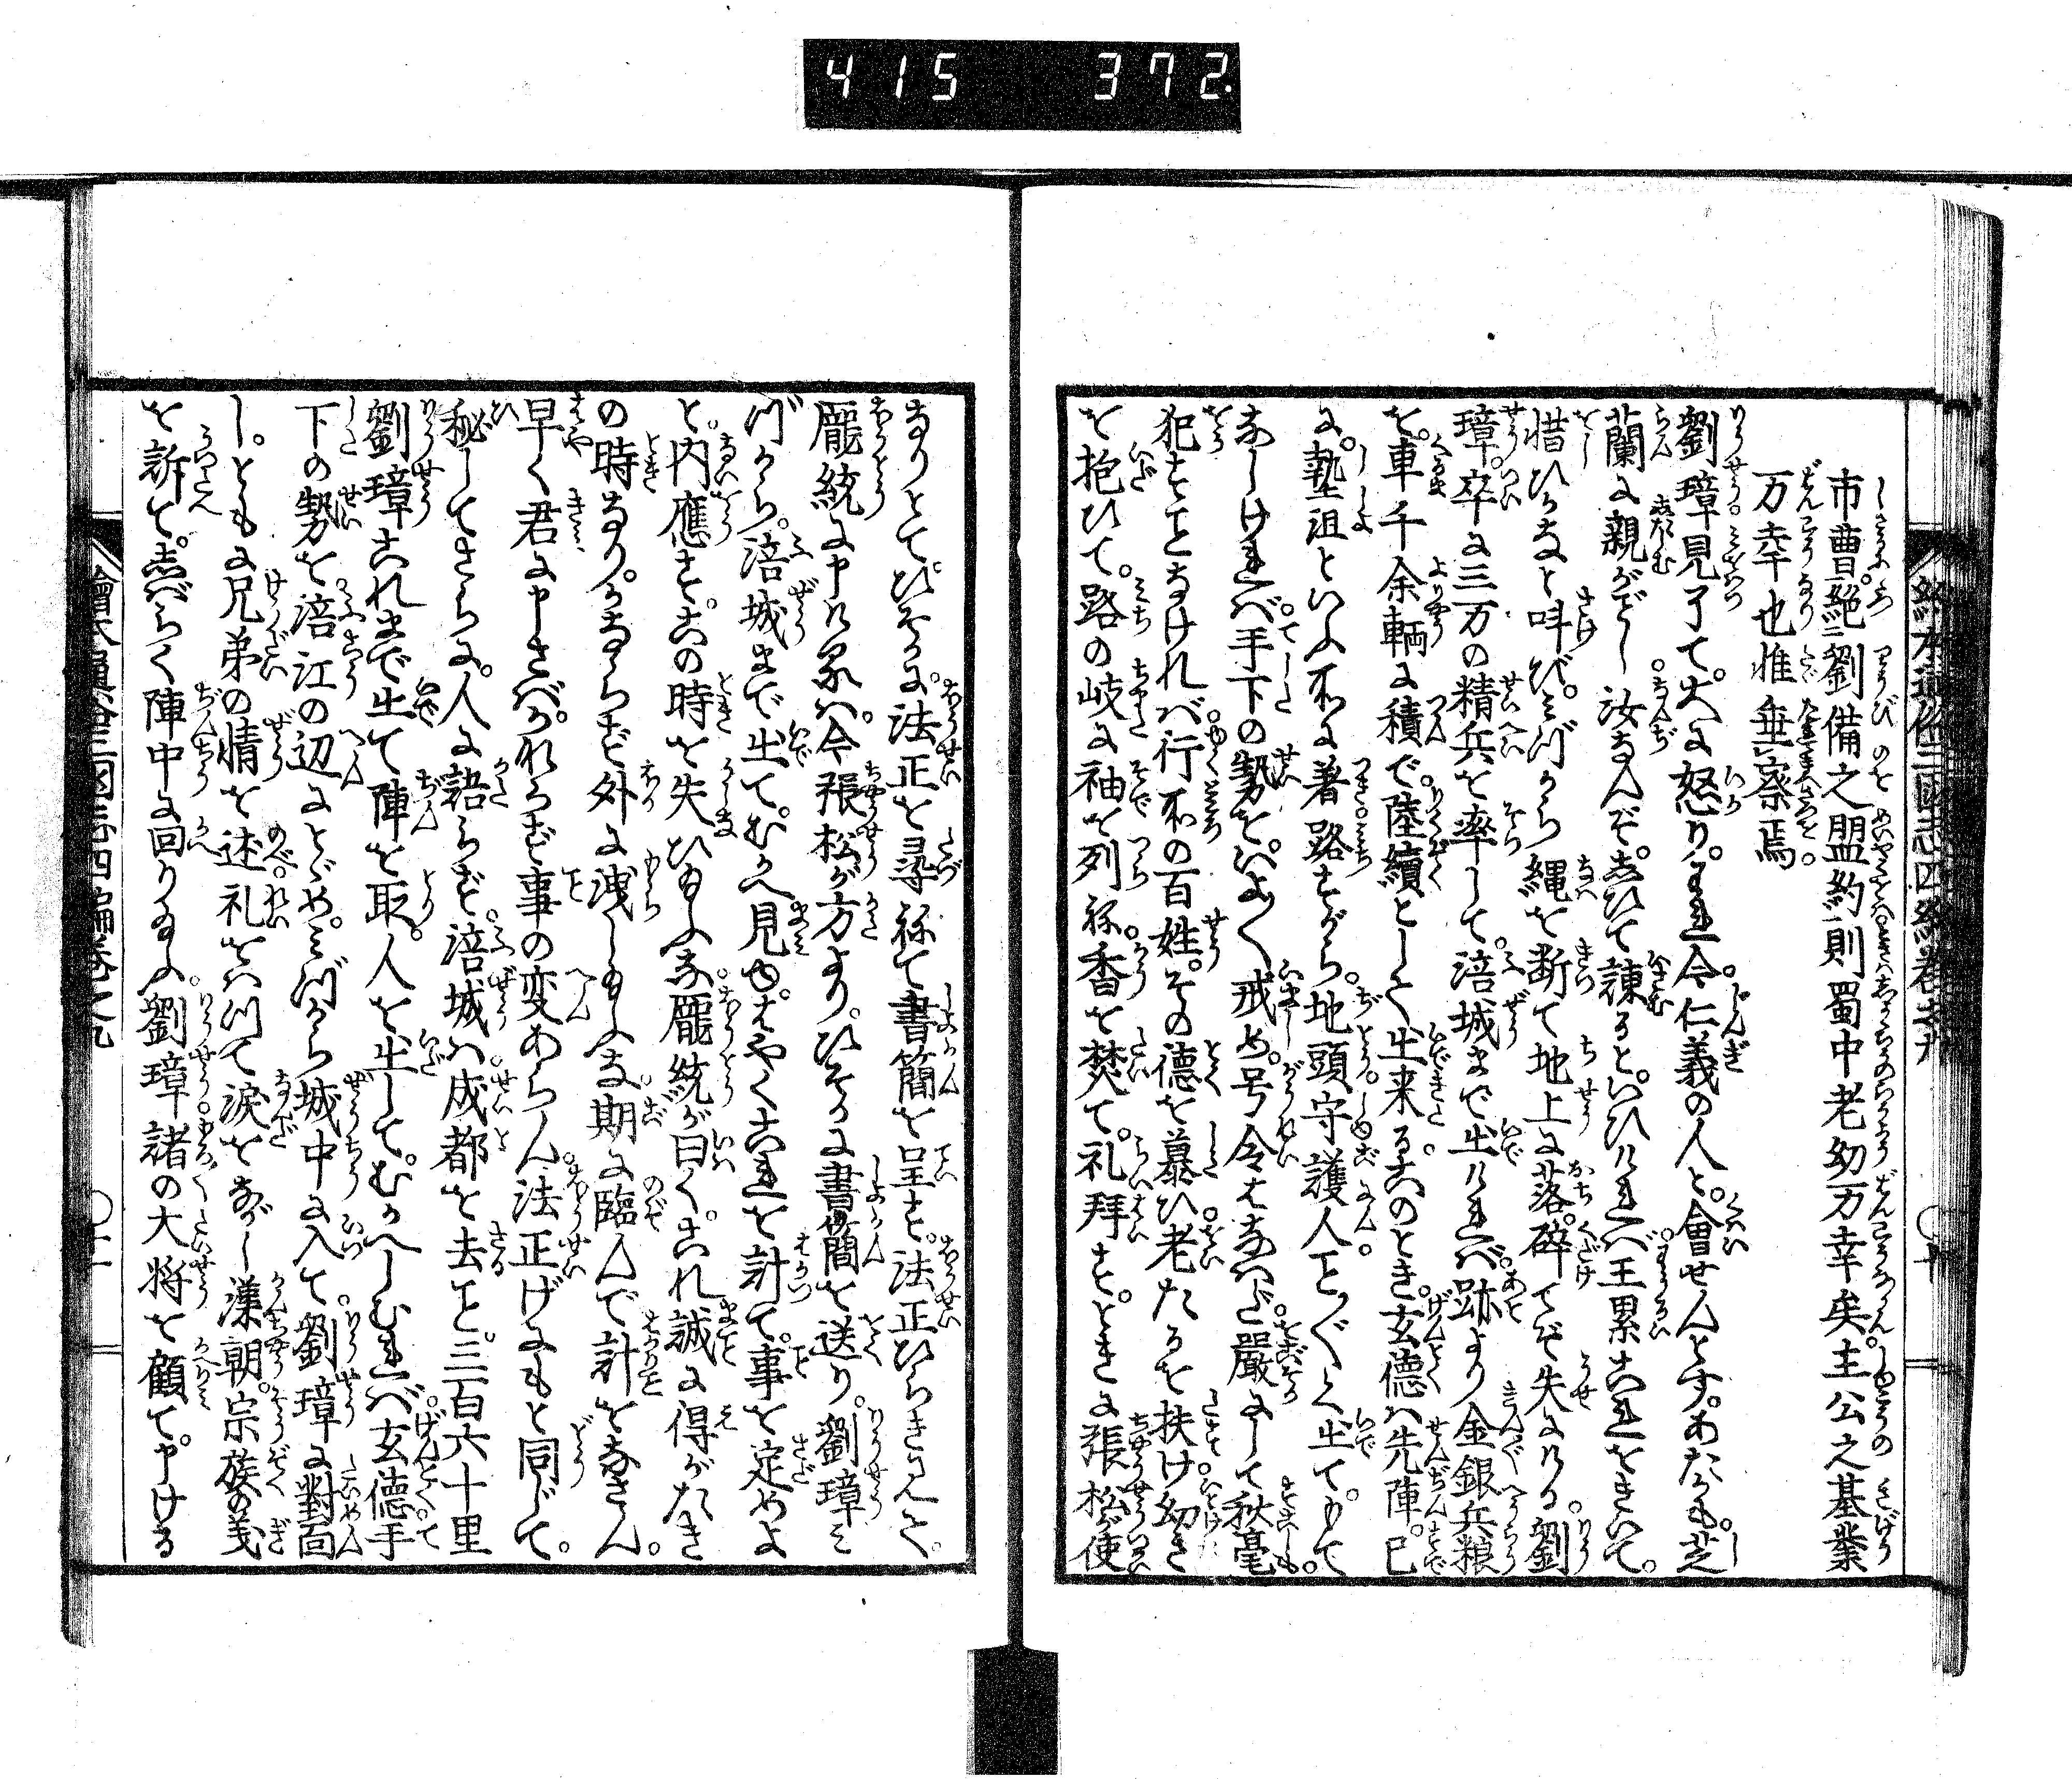 415 372
市曹絶劉備之盟約則蜀中老幼万幸矣主公之基業
万幸也惟垂察焉
劉璋見了て。大に怒り。われ今仁義の人と。會せんとす。あたかも。芝
蘭に親がごし。汝なんぞ。しひて諫ると。いひければ王累これをきいて。
惜ひかなと叫び。みづから縄を断て地上に落。碎てぞ失にける。劉
璋。卒に三万の精兵を率して。涪城まで出ければ。跡より金銀兵粮
を。車千余輌に積で。陸續として出来る。このとき。玄德は先陣。已
に。墊沮といふ所に著。路すがら。地頭守護人ことごとく出て。もて
なしければ。手下の勢を。いよ〱戒め。号令はなはだ。嚴にして秋毫。
犯すことなければ。行所の百姓。その德を慕ひ老たるを扶け幼き
を抱ひて。路の岐に袖を列ね。香を焚て。礼拜す。ときに張松が使
なりとて。ひそかに。法正を尋ねて書簡を呈す。法正ひらきみて。
龐統に申けるは。今張松が方より。ひそかに書簡を送り。劉璋み
づから。涪城まで出て。むかへ見ゆ。はやくこれを計て。事を定めよ
と。内應す。この時を失ひ給ふな。龐統が曰く。これ誠に得がたき
の時なり。かならず外に洩し給ふな。期に臨んで計をなさん。
早く君に申さべかれらず事の変あらん。法正げにもと同じて。
秘してさらに。人に語らず。涪城は成都を去こと。三百六十里
劉璋これまで出て陣を取。人を出して。むかへしむれば。玄德手
下の勢を涪江の辺にとゞめ。みづから城中に入て。劉璋に對面
し。ともに兄弟の情を述。礼をはつて涙をながし漢朝。宗族の義
を訴て。しばらく陣中に回り給ふ。劉璋諸の大将を顧て。申ける
繪本通俗三國志四編巻之九